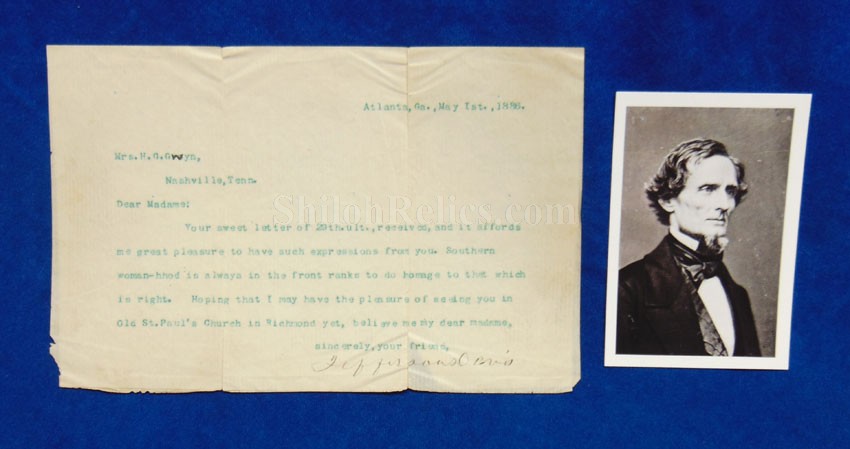 Atlanta, Ga., May 1st., 1886.
Mrs. H.G.Gwyn,
Nashville, Tenn.
Dear Madame:
Your sweet letter of 29th.ult., received, and it affords
me great pleasure to have such expressions from you. Southern
woman-hhod is always in the front ranks to do homage to that which
is right. Hoping that I may have the pleasure of seeing you in
Old St.Paul's Church in Richmond yet, believe me my dear madame,
sincerely, your friend,
Jefferson Davis
ShilohRelics.com